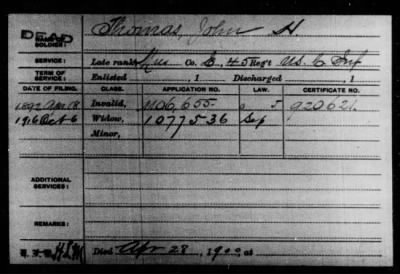 DEAD
NAME OF SOLDIER: Thomas, John H.
SERVICE: Late rank Mus Co. E, 45 Reg't U.S. C. Inf
TERM OF SERVICE: Enlisted , 1 Discharged , 1
DATE OF FILING. CLASS. APPLICATION NO. LAW. CERTIFICATE NO.
1892 Apr 18 Invalid, 1106,655 920621
1916 Oct 6 Widow, 1077536
Minor,
ADDITIONAL SERVICES:
REMARKS:
Died Apr 28, 1900, at